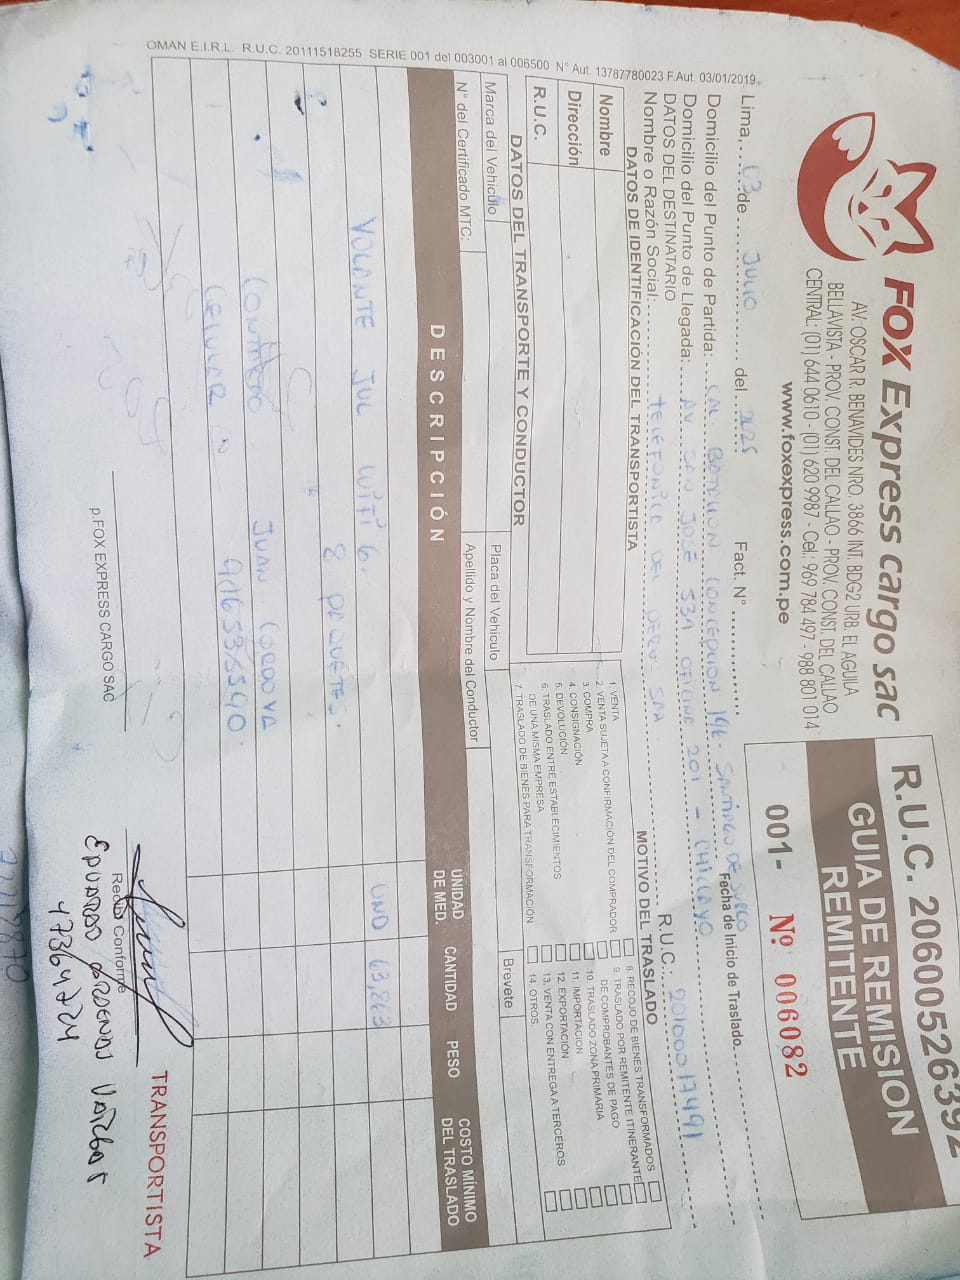 FOX Express cargo sac
AV. OSCAR R. BENAVIDES NRO. 3866 INT. BDG2 URB. EL AGUILA
BELLAVISTA - PROV. CONST. DEL CALLAO - PROV. CONST. DEL CALLAO
CENTRAL: (01) 644 0610 - (01) 620 9987 - Cel.: 969 784 497 - 988 801 014
www.foxexpress.com.pe
R.U.C. 20600526392
GUIA DE REMISION
REMITENTE
001- Nº 006082
Lima, 03 de JULIO del 2025 Fact. N°
Domicilio del Punto de Partida: CAL BATALLON CONCEPCION 196 - SANTIAGO DE SURCO Fecha de Inicio de Traslado
Domicilio del Punto de Llegada: AV SAN JOSÉ 531 OFICINA 201 - CHICLAYO
DATOS DEL DESTINATARIO
Nombre o Razón Social: TELEFONICA DEL PERU SAA R.U.C.: 20100017491
DATOS DE IDENTIFICACIÓN DEL TRANSPORTISTA
Nombre
Dirección
R.U.C.
MOTIVO DEL TRASLADO
1. VENTA
2. VENTA SUJETA A CONFIRMACIÓN DEL COMPRADOR
3. COMPRA
4. CONSIGNACIÓN
5. DEVOLUCIÓN
6. TRASLADO ENTRE ESTABLECIMIENTOS
DE UNA MISMA EMPRESA
7. TRASLADO DE BIENES PARA TRANSFORMACIÓN
8. RECOJO DE BIENES TRANSFORMADOS
9. TRASLADO POR REMITENTE ITINERANTE
DE COMPROBANTES DE PAGO
10. TRASLADO ZONA PRIMARIA
11. IMPORTACION
12. EXPORTACIÓN
13. VENTA CON ENTREGA A TERCEROS
14. OTROS
DATOS DEL TRANSPORTE Y CONDUCTOR
Marca del Vehículo Placa del Vehículo
N° del Certificado MTC: Apellido y Nombre del Conductor Brevete
DESCRIPCIÓN UNIDAD DE MED. CANTIDAD PESO COSTO MÍNIMO DEL TRASLADO
VOLANTE JUL WIFI 6. UND 63,863
8 PAQUETES.
CONTACTO JUAN CORDOVA
CELULAR
OMAN E.I.R.L. R.U.C. 20111518255 SERIE 001 del 003001 al 006500 N° Aut. 13787780023 F.Aut. 03/01/2019
p.FOX EXPRESS CARGO SAC
Recibí Conforme
TRANSPORTISTA
EDUARDO CARDENAS VARGAS
47364724